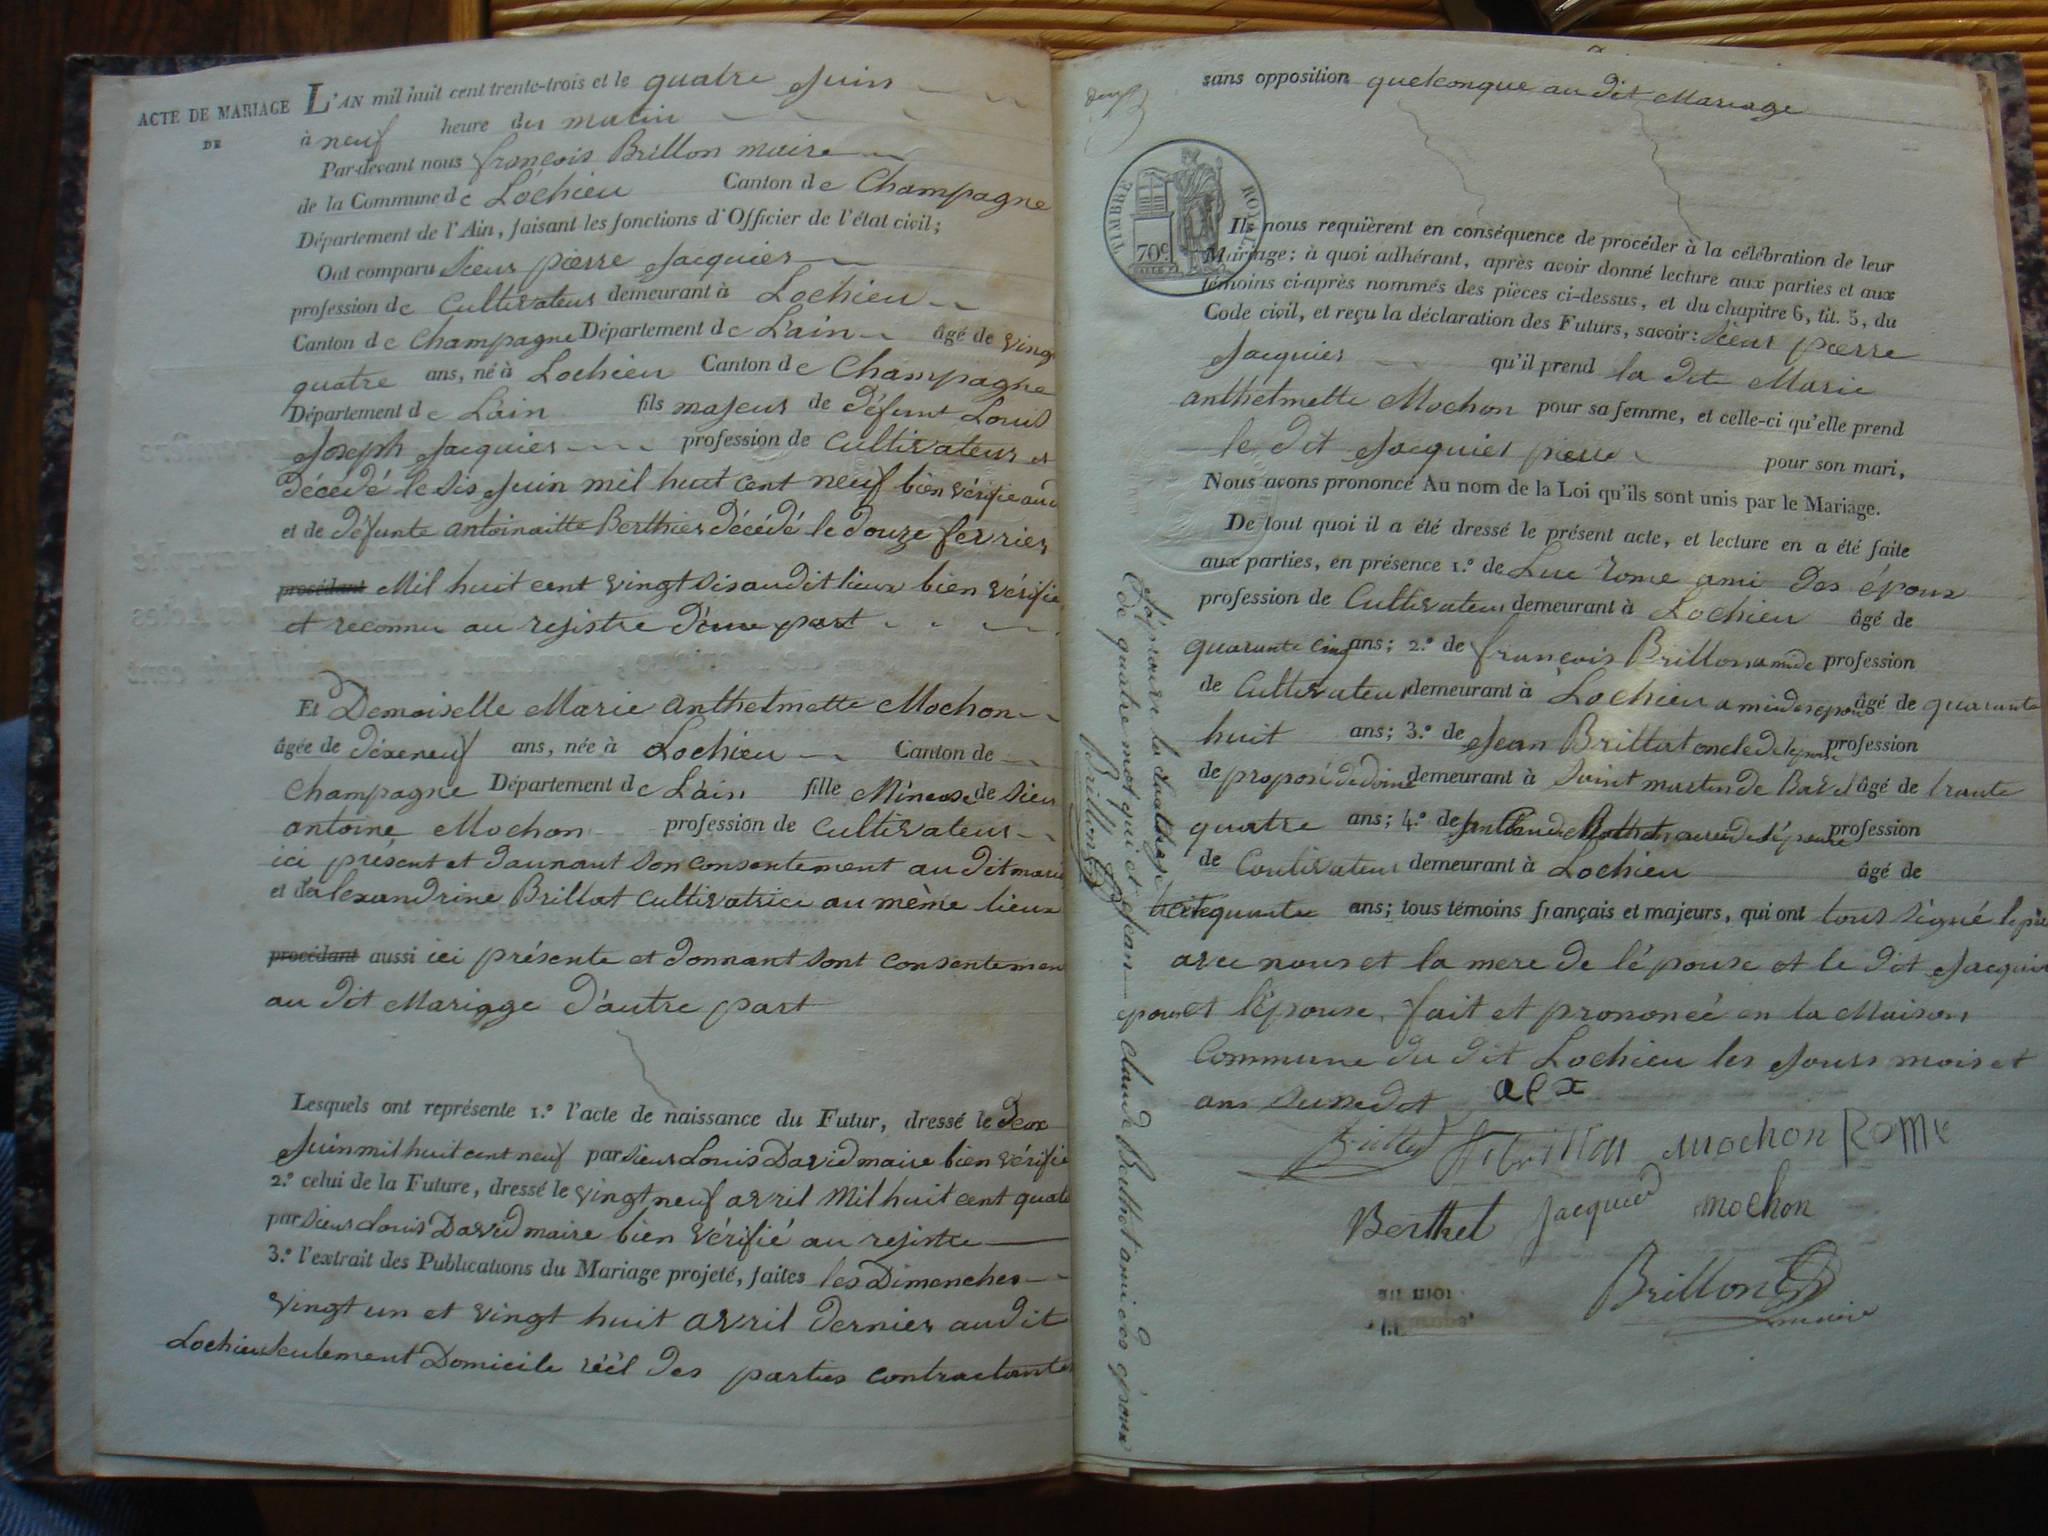 ACTE DE MARIAGE
DE
L'AN mil huit cent trente-trois et le quatre Juin
à neuf heure du matin
Par-devant nous françois Brillon maire
de la Commune de Lochieu Canton de Champagne
Département de l'Ain, faisant les fonctions d'Officier de l'état civil;
Ont comparu Sieur pierre Jacquier
profession de Cultivateur demeurant à Lochieu
Canton de Champagne Département de L'ain âgé de vingt
quatre ans, né à Lochieu Canton de Champagne
Département de L'ain fils majeur de défunt Louis
Joseph Jacquier profession de Cultivateur et
décédé le sis Juin mil huit cent neuf bien vérifie aud
et de défunte antoinaitte Berthier décédé le douze fevrier
procédant Mil huit cent vingt sis au dit lieux bien vérifié
et reconnu au rejistre d'une part
Et Demoiselle Marie anthelmette Mochon
âgée de déxeneuf ans, née à Lochieu Canton de
Champagne Département de L'ain fille Mineuse de Sieur
antoine Mochon profession de Cultivateur
ici présent et daunant son consentement au dit mari
et d'alexandrine Brillat Cultivatrice au même lieux
procédant aussi ici présente et donnant sont consentemen
au dit Mariage d'autre part
Lesquels ont représente 1.º l'acte de naissance du Futur, dressé le deux
Juin mil huit cent neuf par Sieur Louis David maire bien vérifié
2.º celui de la Future, dressé le vingt neuf avril Mil huit cent quato
par Sieur Louis David maire bien vérifié au rejistre
3.º l'extrait des Publications du Mariage projeté, faites les Dimenches
vingt un et vingt huit avril dernier au dit
Lochieu seulement Domicile réèl des parties contractante
sans opposition quelconque au dit Mariage
TIMBRE ROYAL
70 c
Ils nous requièrent en conséquence de procéder à la célébration de leur
Mariage; à quoi adhérant, après avoir donné lecture aux parties et aux
témoins ci-après nommés des pièces ci-dessus, et du chapitre 6, tit. 5, du
Code civil, et reçu la déclaration des Futurs, savoir: Sieur pierre
Jacquier qu'il prend la dite Marie
anthelmette Mochon pour sa femme, et celle-ci qu'elle prend
le dit Jacquier pierre pour son mari,
Nous avons prononcé Au nom de la Loi qu'ils sont unis par le Mariage.
De tout quoi il a été dressé le présent acte, et lecture en a été faite
aux parties, en présence 1.º de Luc Rome ami des époux
profession de Cultivateur demeurant à Lochieu âgé de
quarante cinq ans; 2.º de françois Brillon profession
de Cultivateur demeurant à Lochieu ami des époux âgé de quarante
huit ans; 3.º de Jean Brillat oncle de l'épouse profession
de proposé de doine demeurant à Saint martin de Bavel âgé de trante
quatre ans; 4.º de profession
de Coultivateur demeurant à Lochieu âgé de
ans; tous témoins français et majeurs, qui ont tous Signé le père
avec nous et la mere de l'épouse et le dit Jacquier
époux et l'épouse, fait et prononcé en la Maison
Commune du dit Lochieu les Jours mois et
ans Susnedit
de quatre mot qui et Jean claude Berthet ami des époux
Brillon
alx
Brillat Mochon ROMe
Berthet Jacquier mochon
Brillon
maire